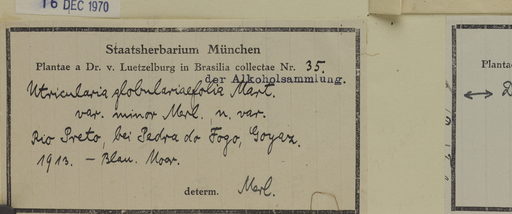 16 DEC 1970
Staatsherbarium München
Plantae a Dr. v. Luetzelburg in Brasilia collectae Nr. 35.
der Alkoholsammlung.
Utricularia globulariaefolia Mart.
var. minor Merl. n. var.
Rio Preto, bei Pedra do Fogo, Goyaz.
1913. – Blau. Moor.
determ. Merl.
Planta